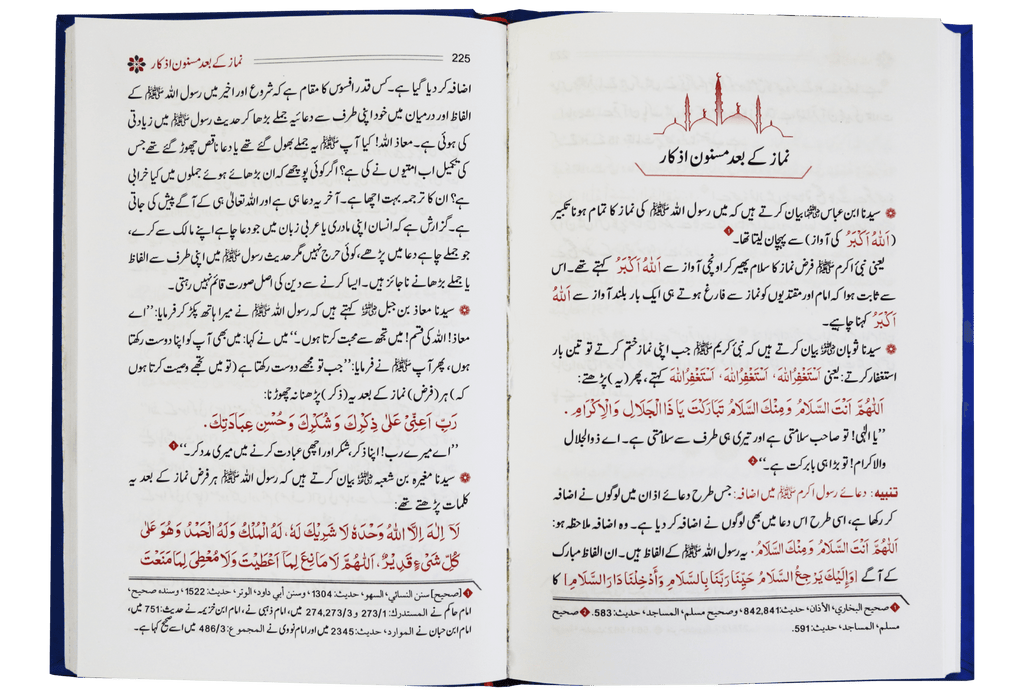 نماز کے بعد مسنون اذکار
سیدنا ابن عباس رضی اللہ عنہما بیان کرتے ہیں کہ میں رسول اللہ ﷺ کی نماز کا تمام ہونا تکبیر
(اَللّٰهُ اَكْبَرُ کی آواز) سے پہچان لیتا تھا۔ ❶
یعنی نبیٔ اکرم ﷺ فرض نماز کا سلام پھیر کر اونچی آواز سے اَللّٰهُ اَكْبَرُ کہتے تھے۔ اس
سے ثابت ہوا کہ امام اور مقتدیوں کو نماز سے فارغ ہوتے ہی ایک بار بلند آواز سے اَللّٰهُ
اَكْبَرُ کہنا چاہیے۔
سیدنا ثوبان رضی اللہ عنہ بیان کرتے ہیں کہ نبیٔ کریم ﷺ جب اپنی نماز ختم کرتے تو تین بار
استغفار کرتے: یعنی اَسْتَغْفِرُاللّٰهَ، اَسْتَغْفِرُاللّٰهَ، اَسْتَغْفِرُاللّٰهَ کہتے، پھر (یہ) پڑھتے:
اَللّٰهُمَّ اَنْتَ السَّلَامُ وَمِنْكَ السَّلَامُ تَبَارَكْتَ يَا ذَا الْجَلَالِ وَالْاِكْرَامِ۔
’’یا الٰہی! تو صاحب سلامتی ہے اور تیری ہی طرف سے سلامتی ہے۔ اے ذوالجلال
والاکرام! تو بڑا ہی بابرکت ہے۔‘‘ ❷
تنبیہ: دعائے رسول اکرم ﷺ میں اضافہ: جس طرح دعائے اذان میں لوگوں نے اضافہ
کر رکھا ہے، اسی طرح اس دعا میں بھی لوگوں نے اضافہ کر دیا ہے۔ وہ اضافہ ملاحظہ ہو:
اَللّٰهُمَّ اَنْتَ السَّلَامُ وَمِنْكَ السَّلَامُ. یہ رسول اللہ ﷺ کے الفاظ ہیں۔ ان الفاظ مبارک
کے آگے [وَاِلَيْكَ يَرْجِعُ السَّلَامُ حَيِّنَا رَبَّنَا بِالسَّلَامِ وَاَدْخِلْنَا دَارَ السَّلَامِ] کا
❶ صحيح البخاري، الأذان، حديث: 842,841، وصحيح مسلم، المساجد، حديث: 583. ❷ صحيح
مسلم، المساجد، حديث: 591.
225 نماز کے بعد مسنون اذکار
اضافہ کر دیا گیا ہے۔ کس قدر افسوس کا مقام ہے کہ شروع اور اخیر میں رسول اللہ ﷺ کے
الفاظ اور درمیان میں خود اپنی طرف سے دعائیہ جملے بڑھا کر حدیث رسول ﷺ میں زیادتی
کی ہوئی ہے۔ معاذ اللہ! کیا آپ ﷺ یہ جملے بھول گئے تھے یا دعا ناقص چھوڑ گئے تھے جس
کی تکمیل اب امتیوں نے کی ہے؟ اگر کوئی پوچھے کہ ان بڑھائے ہوئے جملوں میں کیا خرابی
ہے؟ ان کا ترجمہ بہت اچھا ہے۔ آخر یہ دعا ہی ہے اور اللہ تعالیٰ ہی کے آگے پیش کی جاتی
ہے۔ گزارش ہے کہ انسان اپنی مادری یا عربی زبان میں جو دعا چاہے اپنے مالک سے کرے،
جو جملے چاہے دعا میں پڑھے، کوئی حرج نہیں مگر حدیث رسول ﷺ میں اپنی طرف سے الفاظ
یا جملے بڑھانے ناجائز ہیں۔ ایسا کرنے سے دین کی اصل صورت قائم نہیں رہتی۔
سیدنا معاذ بن جبل رضی اللہ عنہ کہتے ہیں کہ رسول اللہ ﷺ نے میرا ہاتھ پکڑ کر فرمایا: ’’اے
معاذ! اللہ کی قسم! میں تجھ سے محبت کرتا ہوں۔‘‘ میں نے کہا: میں بھی آپ کو اپنا دوست رکھتا
ہوں، پھر آپ ﷺ نے فرمایا: ’’جب تو مجھے دوست رکھتا ہے (تو میں تجھے وصیت کرتا ہوں
کہ) ہر (فرض) نماز کے بعد یہ (ذکر) پڑھنا نہ چھوڑنا:
رَبِّ اَعِنِّيْ عَلٰى ذِكْرِكَ وَشُكْرِكَ وَحُسْنِ عِبَادَتِكَ.
’’اے میرے رب! اپنا ذکر، شکر اور اچھی عبادت کرنے میں میری مدد کر۔‘‘ ❶
سیدنا مغیرہ بن شعبہ رضی اللہ عنہ بیان کرتے ہیں کہ رسول اللہ ﷺ ہر فرض نماز کے بعد یہ
کلمات پڑھتے تھے:
لَآ اِلٰهَ اِلَّا اللّٰهُ وَحْدَهٗ لَا شَرِيْكَ لَهٗ، لَهُ الْمُلْكُ وَلَهُ الْحَمْدُ وَهُوَ عَلٰى
كُلِّ شَيْءٍ قَدِيْرٌ، اَللّٰهُمَّ لَا مَانِعَ لِمَا اَعْطَيْتَ وَلَا مُعْطِيَ لِمَا مَنَعْتَ
❶ [صحيح] سنن النسائي، السهو، حديث: 1304، وسنن أبي داود، الوتر، حديث: 1522، وسنده صحيح،
امام حاکم نے المستدرك: 273/1 و 274,273/3 میں، امام ذہبی نے، امام ابن خزیمہ نے حدیث: 751 میں،
امام ابن حبان نے الموارد، حديث: 2345 میں اور امام نووی نے المجموع: 486/3 میں اسے صحیح کہا ہے۔